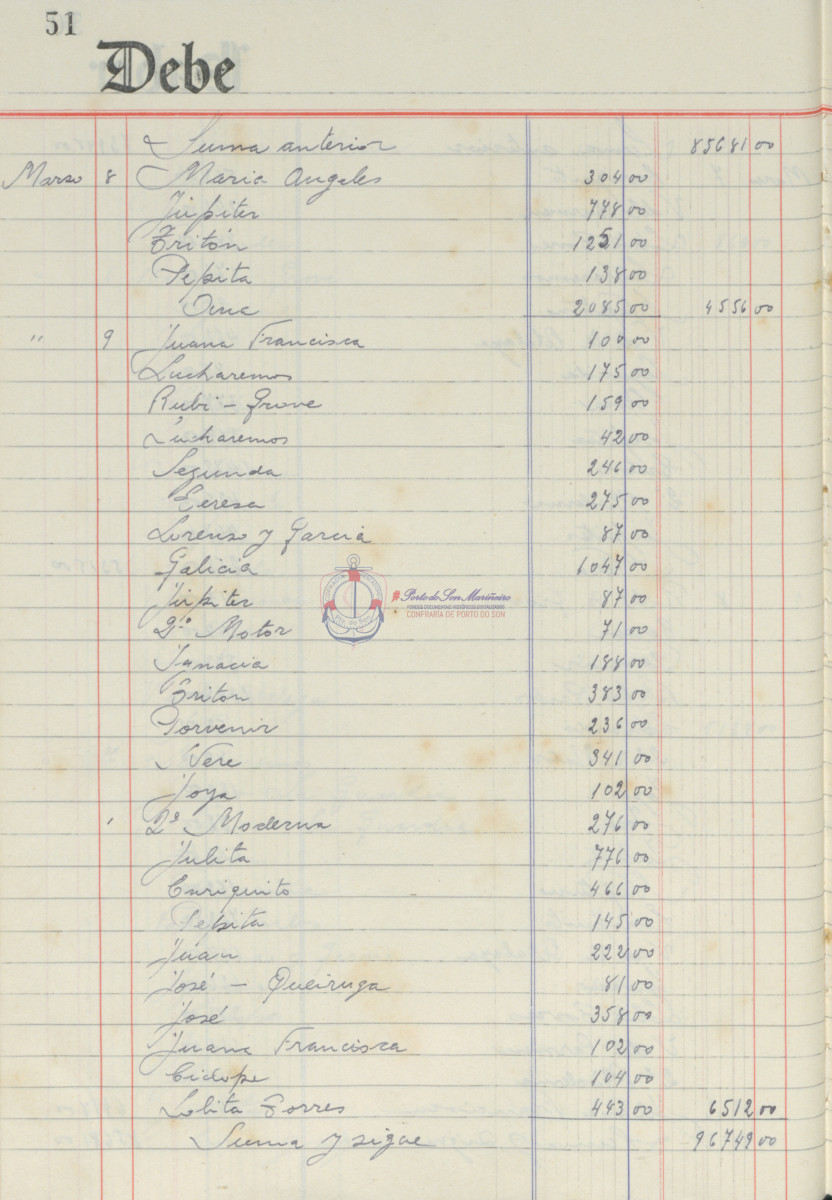 51
Debe
Suma anterior 85681 00
Marzo 8 Maria Angeles 304 00
Júpiter 778 00
Tritón 1251 00
Pepita 138 00
2085 00 4556 00
" 9 Juana Francisca 100 00
Lucharemos 175 00
Rubi - Grove 159 00
Lucharemos 42 00
Segunda 246 00
Teresa 275 00
Lorenzo y Garcia 87 00
Galicia 1047 00
Júpiter 87 00
2º Motor 71 00
Ygnacia 188 00
Triton 383 00
Porvenir 236 00
Nere 341 00
Joya 102 00
2ª Moderna 276 00
Julita 776 00
Enriquito 466 00
Pepita 145 00
Juan 222 00
José - Queiruga 81 00
José 358 00
Juana Francisca 102 00
Ciclope 104 00
Lolita Torres 443 00 6512 00
Suma y sigue 96749 00
Porto do Son Mariñeiro
FONDOS DOCUMENTAIS HISTÓRICOS DIXITALIZADOS
CONFRARÍA DE PORTO DO SON